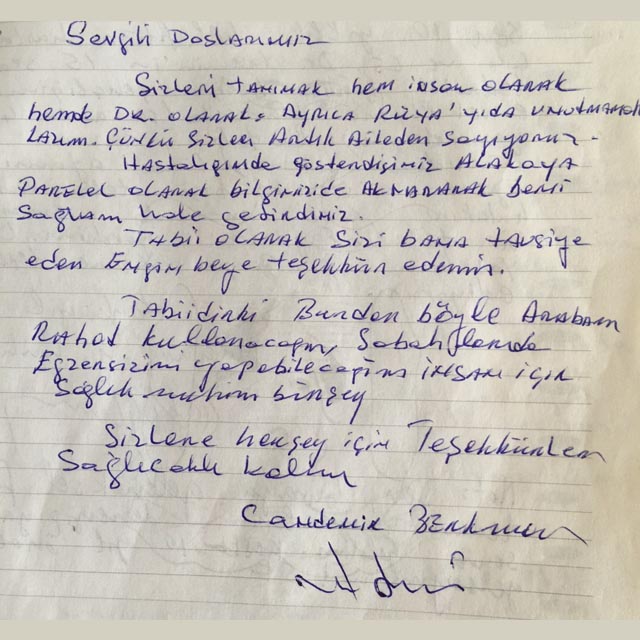 Sevgili Dostlarımız
Sizleri tanımak hem insan olarak
hemde DR. olarak. Ayrıca Rüya'yıda unutmamak
Lazım. Çünkü Sizleri Artık Aileden Sayıyoruz.
Hastalığımda gösterdiğimiz Alakaya
Parelel olarak bilginizide Aktararak beni
Sağlam hale getirdiniz.
Tabii olarak Sizi bana tavsiye
eden Engin beye teşekkür ederim.
Tabiidirki Bundan böyle Arabam
Rahat kullanacağım, Sabahlarıda
Egzersizimi yapabileceğim insan için
Sağlık mühim birşey
Sizlere herşey için Teşekkürler
Sağlıcakla kalın
Candemir